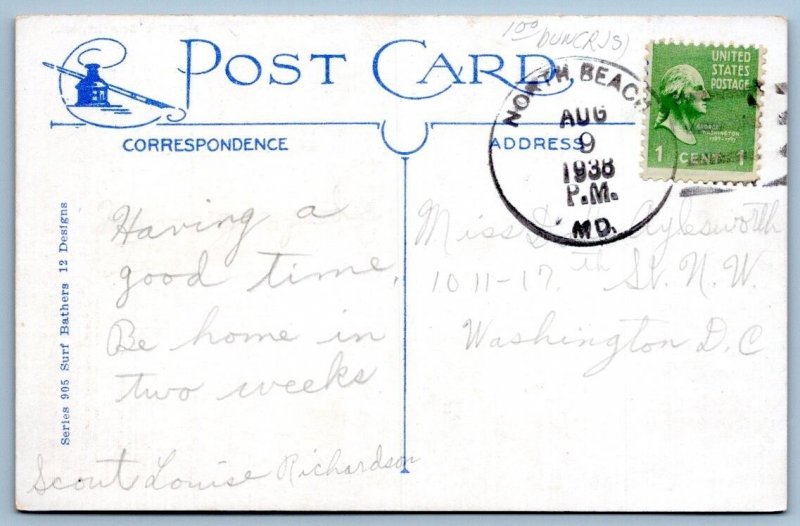 POST CARD
CORRESPONDENCE
ADDRESS
NORTH BEACH
AUG
9
1938
P.M.
MD.
UNITED
STATES
POSTAGE
GEORGE
WASHINGTON
1789-1797
1 CENT 1
Having a
good time,
Be home in
two weeks.
Scout Louise Richardson
Miss Aylesworth
1011-17th St. N.W.
Washington D.C
Series 905 Surf Bathers 12 Designs